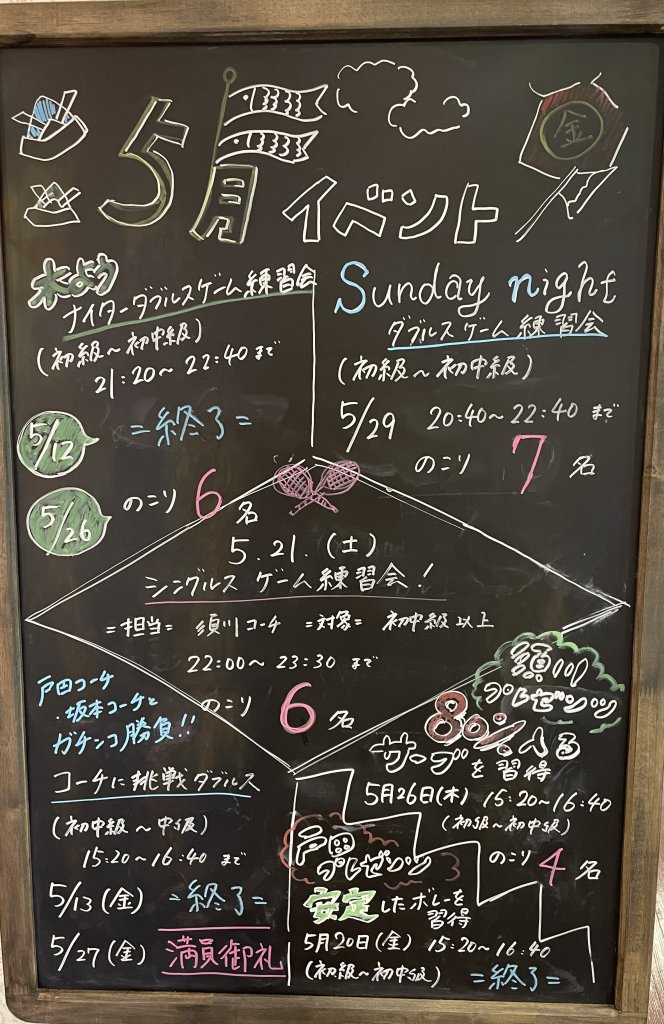 金
5月イベント
木よう
ナイターダブルスゲーム練習会
(初級～初中級)
21:20～22:40まで
5/12 =終了=
5/26 のこり6名
Sunday night
ダブルスゲーム練習会
(初級～初中級)
5/29 20:40～22:40まで
のこり7名
5.21.(土)
シングルスゲーム練習会!
=担当= 須川コーチ =対象= 初中級以上
22:00～23:30まで
のこり6名
戸田コーチ
・坂本コーチと
ガチンコ勝負!!
コーチに挑戦ダブルス
(初中級～中級)
15:20～16:40まで
5/13(金) =終了=
5/27(金) 満員御礼
須川
プレゼンツ
80%入る
サーブを習得
5月26日(木) 15:20～16:40
(初級～初中級)
のこり4名
戸田
プレゼンツ
安定したボレーを
習得
5月20日(金) 15:20～16:40
(初級～初中級) =終了=